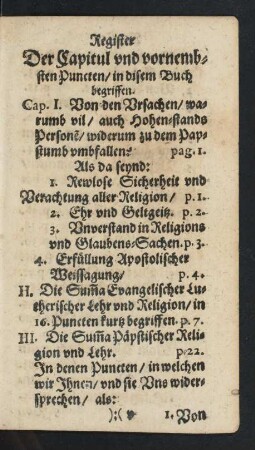 Register
Der Capitul vnd vornemb-
sten Puncten/ in disem Buch
begriffen.
Cap. I. Von den Vrsachen/ wa-
rumb vil/ auch Hohen-stands
Personē/ widerum zu dem Pap-
stumb vmbfallen: pag. 1.
Als da seynd:
1. Rewlose Sicherheit vnd
Verachtung aller Religion/ p. 1.
2. Ehr vnd Geltgeitz. p. 2.
3. Vnverstand in Religions
vnd Glaubens-Sachen. p. 3.
4. Erfüllung Apostolischer
Weissagung/ p. 4.
II. Die Sum̃a Evangelischer Lu-
therischer Lehr vnd Religion/ in
16. Puncten kurtz begriffen. p. 7.
III. Die Sum̃a Päpstischer Reli-
gion vnd Lehr. p. 22.
In denen Puncten/ in welchen
wir Ihnen/ vnd sie Vns wider-
sprechen/ als:
):( v 1. Von